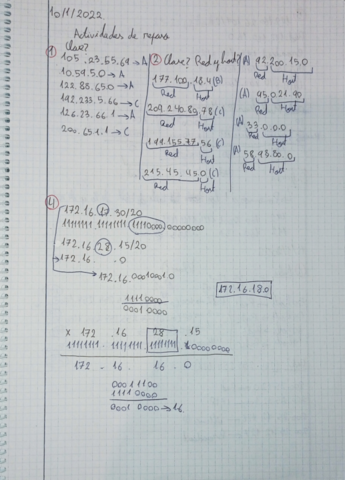 10/1/2022
Actividades de repaso
① Clase?
105.23.65.69 → A
10.59.5.0 → A
122.85.65.0 → A
192.233.5.66 → C
126.23.66.1 → A
200.65.1.1 → C
② Clase? Red y host?
177.100.18.4 (B)
Red Host
209.240.80.78 (C)
Red Host
199.155.77.56 (C)
Red Host
215.45.45.0 (C)
Red Host
(A) 92.200.15.0
Red Host
(A) 95.021.90.
Red Host
(A) 33.0.0.0
Red Host
(A) 58.93.80.0
Red Host
④
172.16.17.30/20
11111111.11111111.11110000.00000000
172.16.28.15/20
172.16. .0
172.16.00010001.0
11110000
00010000
172.16.18.0
x 172 .16 28 .15
11111111.11111111.11111111.00000000
172 . 16 . 16 . 0
00011100
11110000
0001 0000 → 16